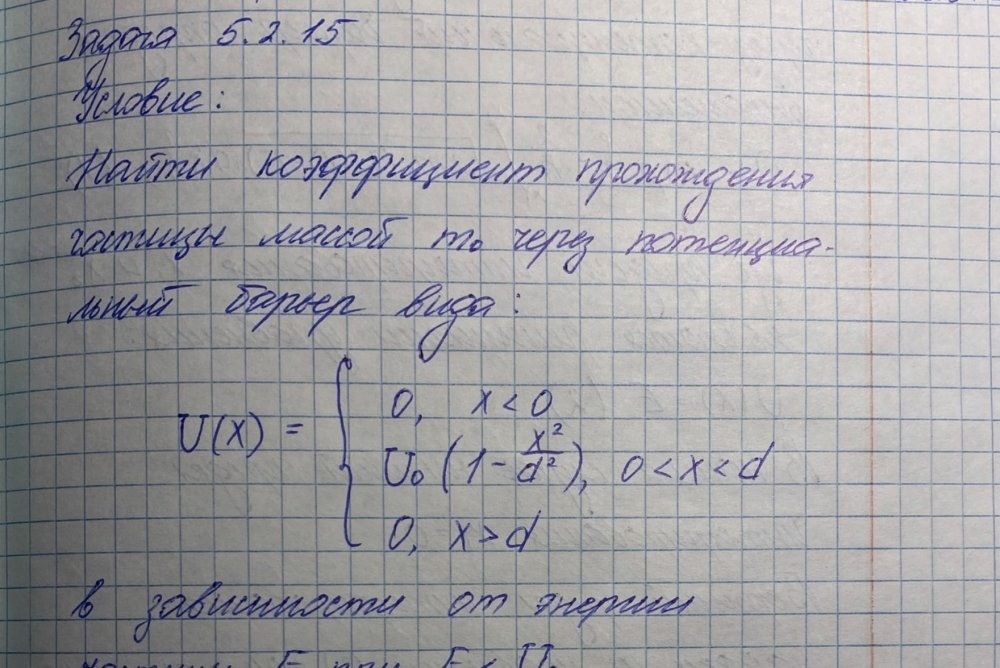 Задача 5.2.15
Условие:
Найти коэффициент прохождения
частицы массой m₀ через потенциа-
льный барьер вида:
U(x) = { 0, x < 0
U₀ (1 - x²/d²), 0 < x < d
0, x > d
в зависимости от энергии
частицы E при E < U₀